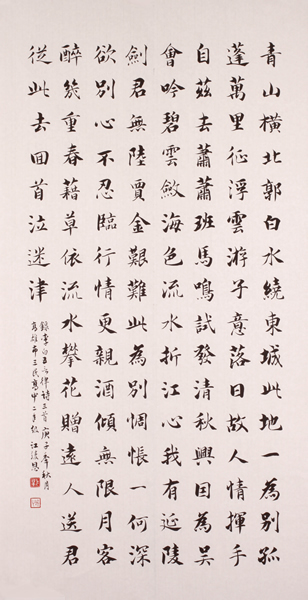 青山橫北郭白水繞東城此地一為別孤
蓬萬里征浮雲游子意落日故人情揮手
自茲去蕭蕭班馬鳴試發清秋興因為吳
會吟碧雲斂海色流水折江心我有延陵
劍君無陸賈金艱難此為別惆悵一何深
欲別心不忍臨行情更親酒傾無限月客
醉幾重春藉草依流水攀花贈遠人送君
從此去回首泣迷津
錄李白五言律詩三首庚子年秋月
高雄市三民高中二年級江